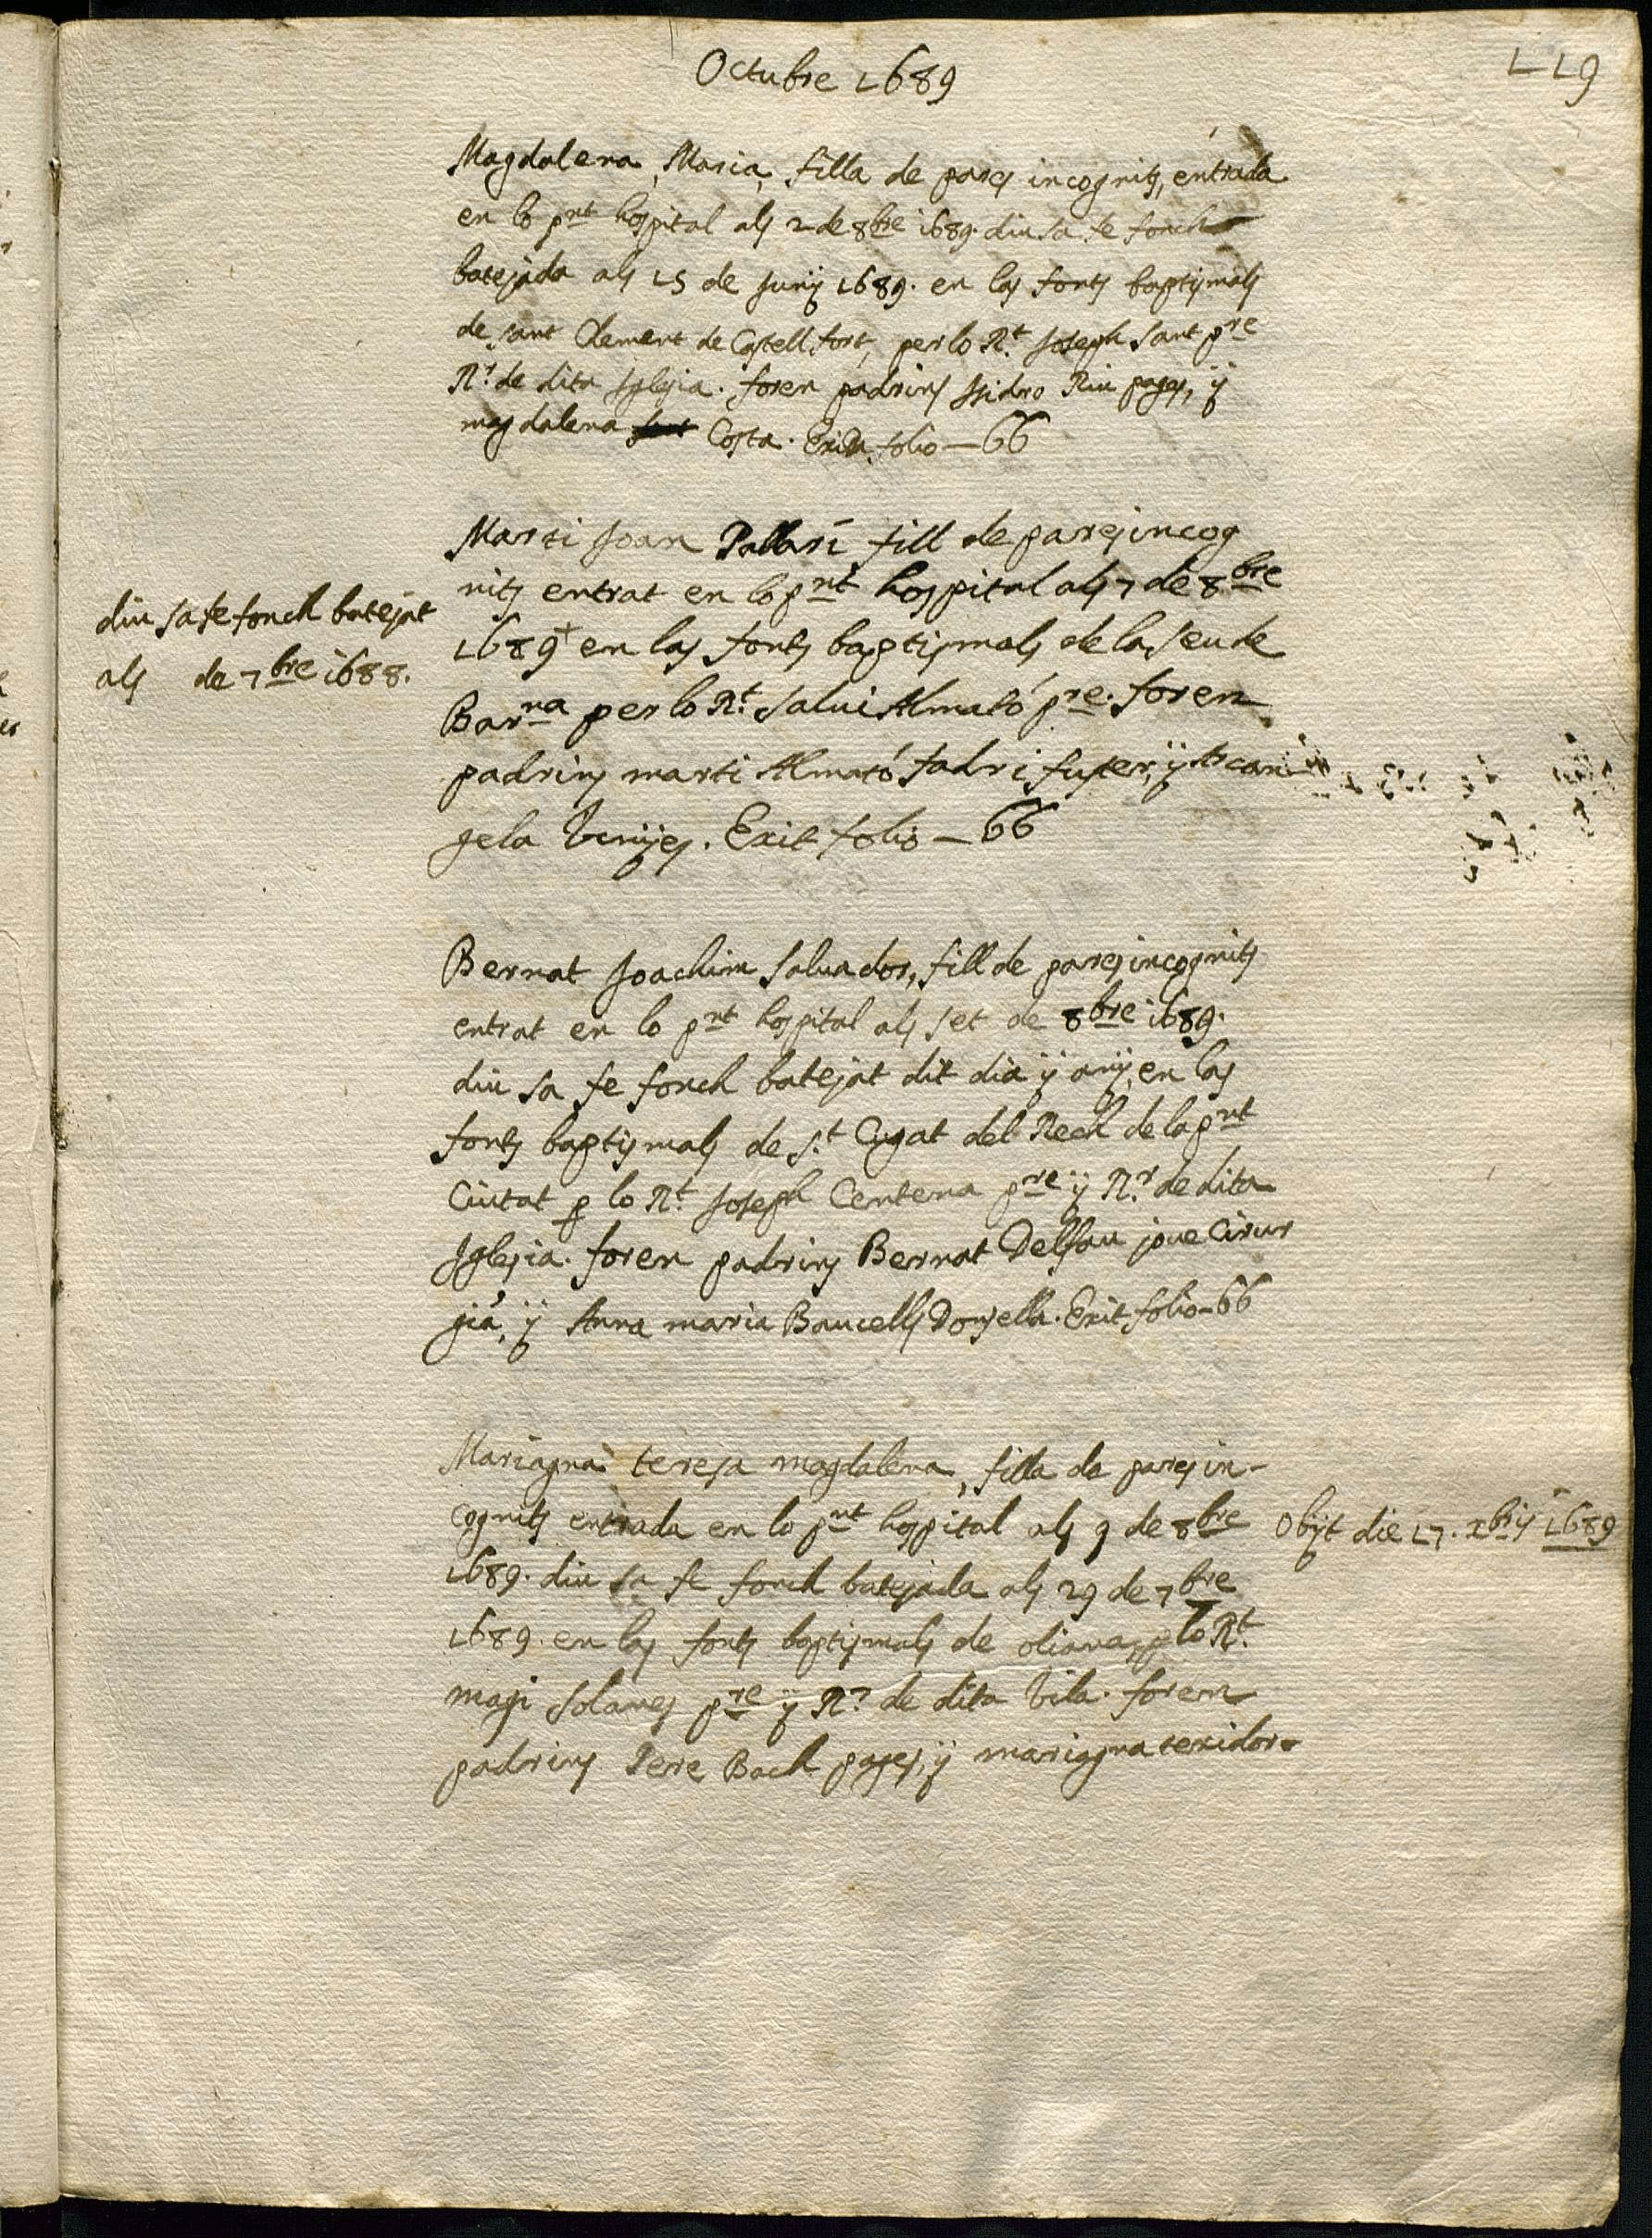 Octubre 1689
119
Magdalena, Maria, filla de pares incognits, entrada
en lo pnt hospital als 2 de 8bre 1689. diu sa fe fonch
batejada als 15 de Juny 1689. en las fonts baptismals
de sant Clement de Castellfort, per lo Rt. Joseph Sant pre
Rr. de dita Iglesia. foren padrins Isidro Riu pages, ÿ
magdalena Costa. Exit folio — 66
Marti Joan Pallari fill de pares incog
nits entrat en lo pnt hospital als 7 de 8bre
1689 + en las fonts baptismals de la Seu de
diu sa fe fonch batejat
als de 7bre 1688.
Barna per lo Rt. Salui Almató pre. foren
padrins marti Almató fadri fuster, ÿ Arcan
gela . Exit folio — 66
Bernat Joachim Saluador, fill de pares incognits
entrat en lo pnt hospital als set de 8bre 1689.
diu sa fe fonch batejat dit dia ÿ anÿ, en las
fonts baptismals de St. Cugat del Rech de la pnt
Ciutat p lo Rt. Joseph Centena pre ÿ Rr. de dita
Iglesia. foren padrins Bernat Delfau joue Cirur
già, ÿ Anna maria Baucells Donsella. Exit folio - 66
Mariagna teresa magdalena, filla de pares in-
cognits entrada en lo pnt hospital als 9 de 8bre
Obÿt die 17. xbris 1689
1689. diu sa fe fonch batejada als 29 de 7bre
1689. en las fonts baptismals de oliana, p lo Rt.
magi Solanes pre ÿ Rr. de dita Vila. foren
padrins Pere Bach pages, ÿ mariagna texidor